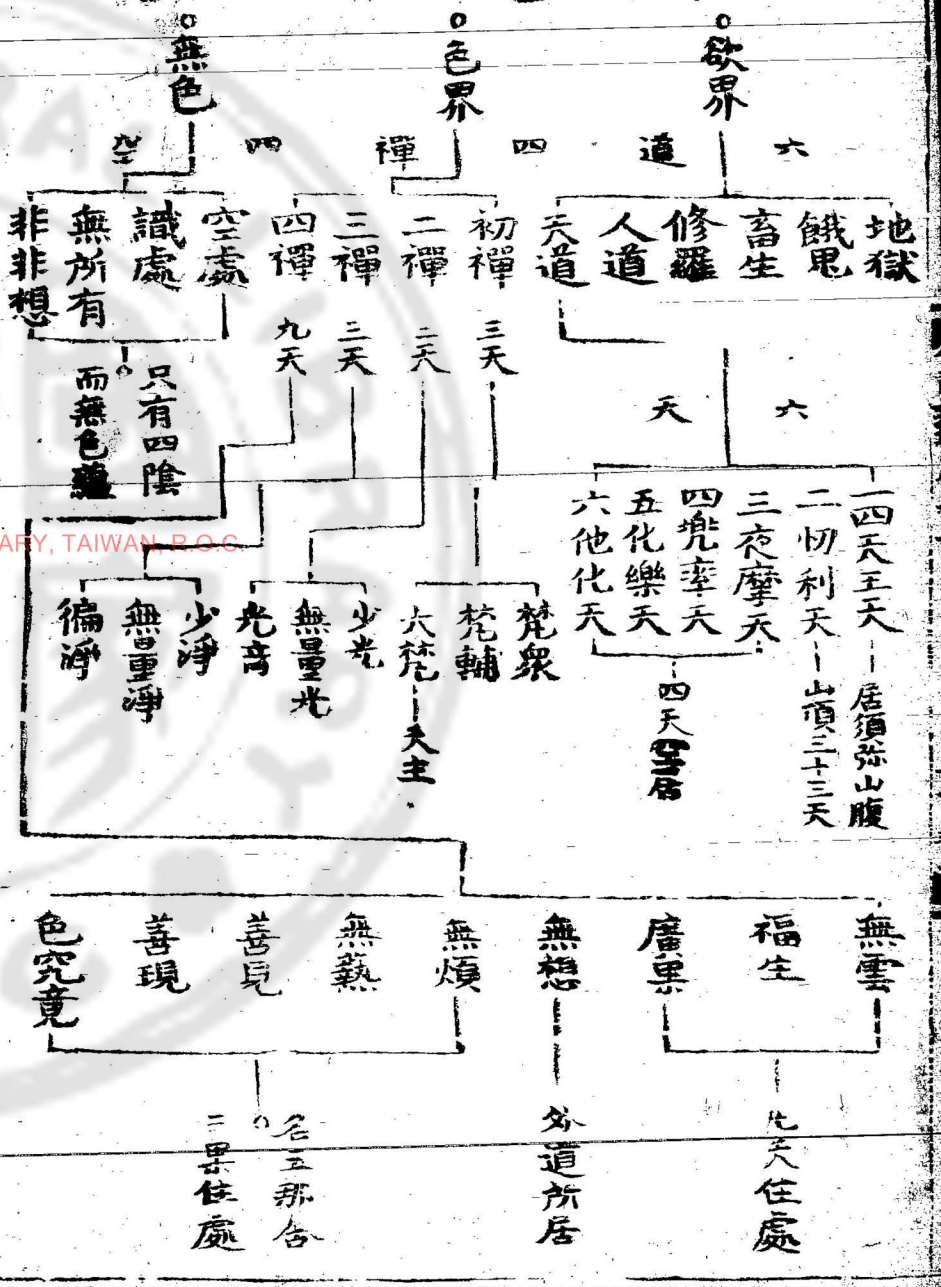 欲界
六道
地獄
餓鬼
畜生
修羅
人道
天道
六天
一四天王天
居須弥山腹
二忉利天
山頂三十三天
三夜摩天
四兜率天
五化樂天
六他化天
四天空居
色界
四禪
初禪
三天
梵衆
梵輔
大梵
天主
二禪
三天
少光
無量光
光音
三禪
三天
少淨
無量淨
徧淨
四禪
九天
無雲
福生
廣果
住處
無想
外道所居
無煩
無熱
善見
善現
色究竟
名五那含
三果住處
無色
四空
空處
識處
無所有
非非想
只有四陰
而無色蘊
ARY, TAIWAN, R.O.C.